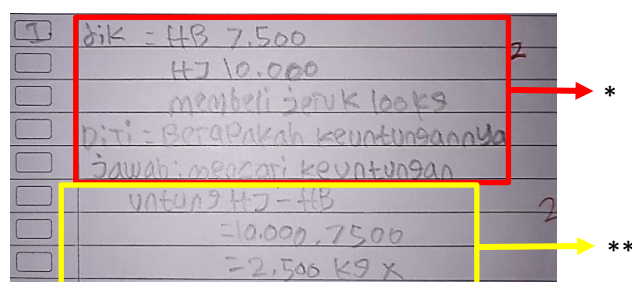 1 dik = HB 7.500 2
HJ 10.000 *
membeli jeruk 100 kg
Diti = Berapakah keuntungannya
jawab : mencari keuntungan
untung HJ - HB 2
= 10.000, 7500 **
= 2.500 kg x